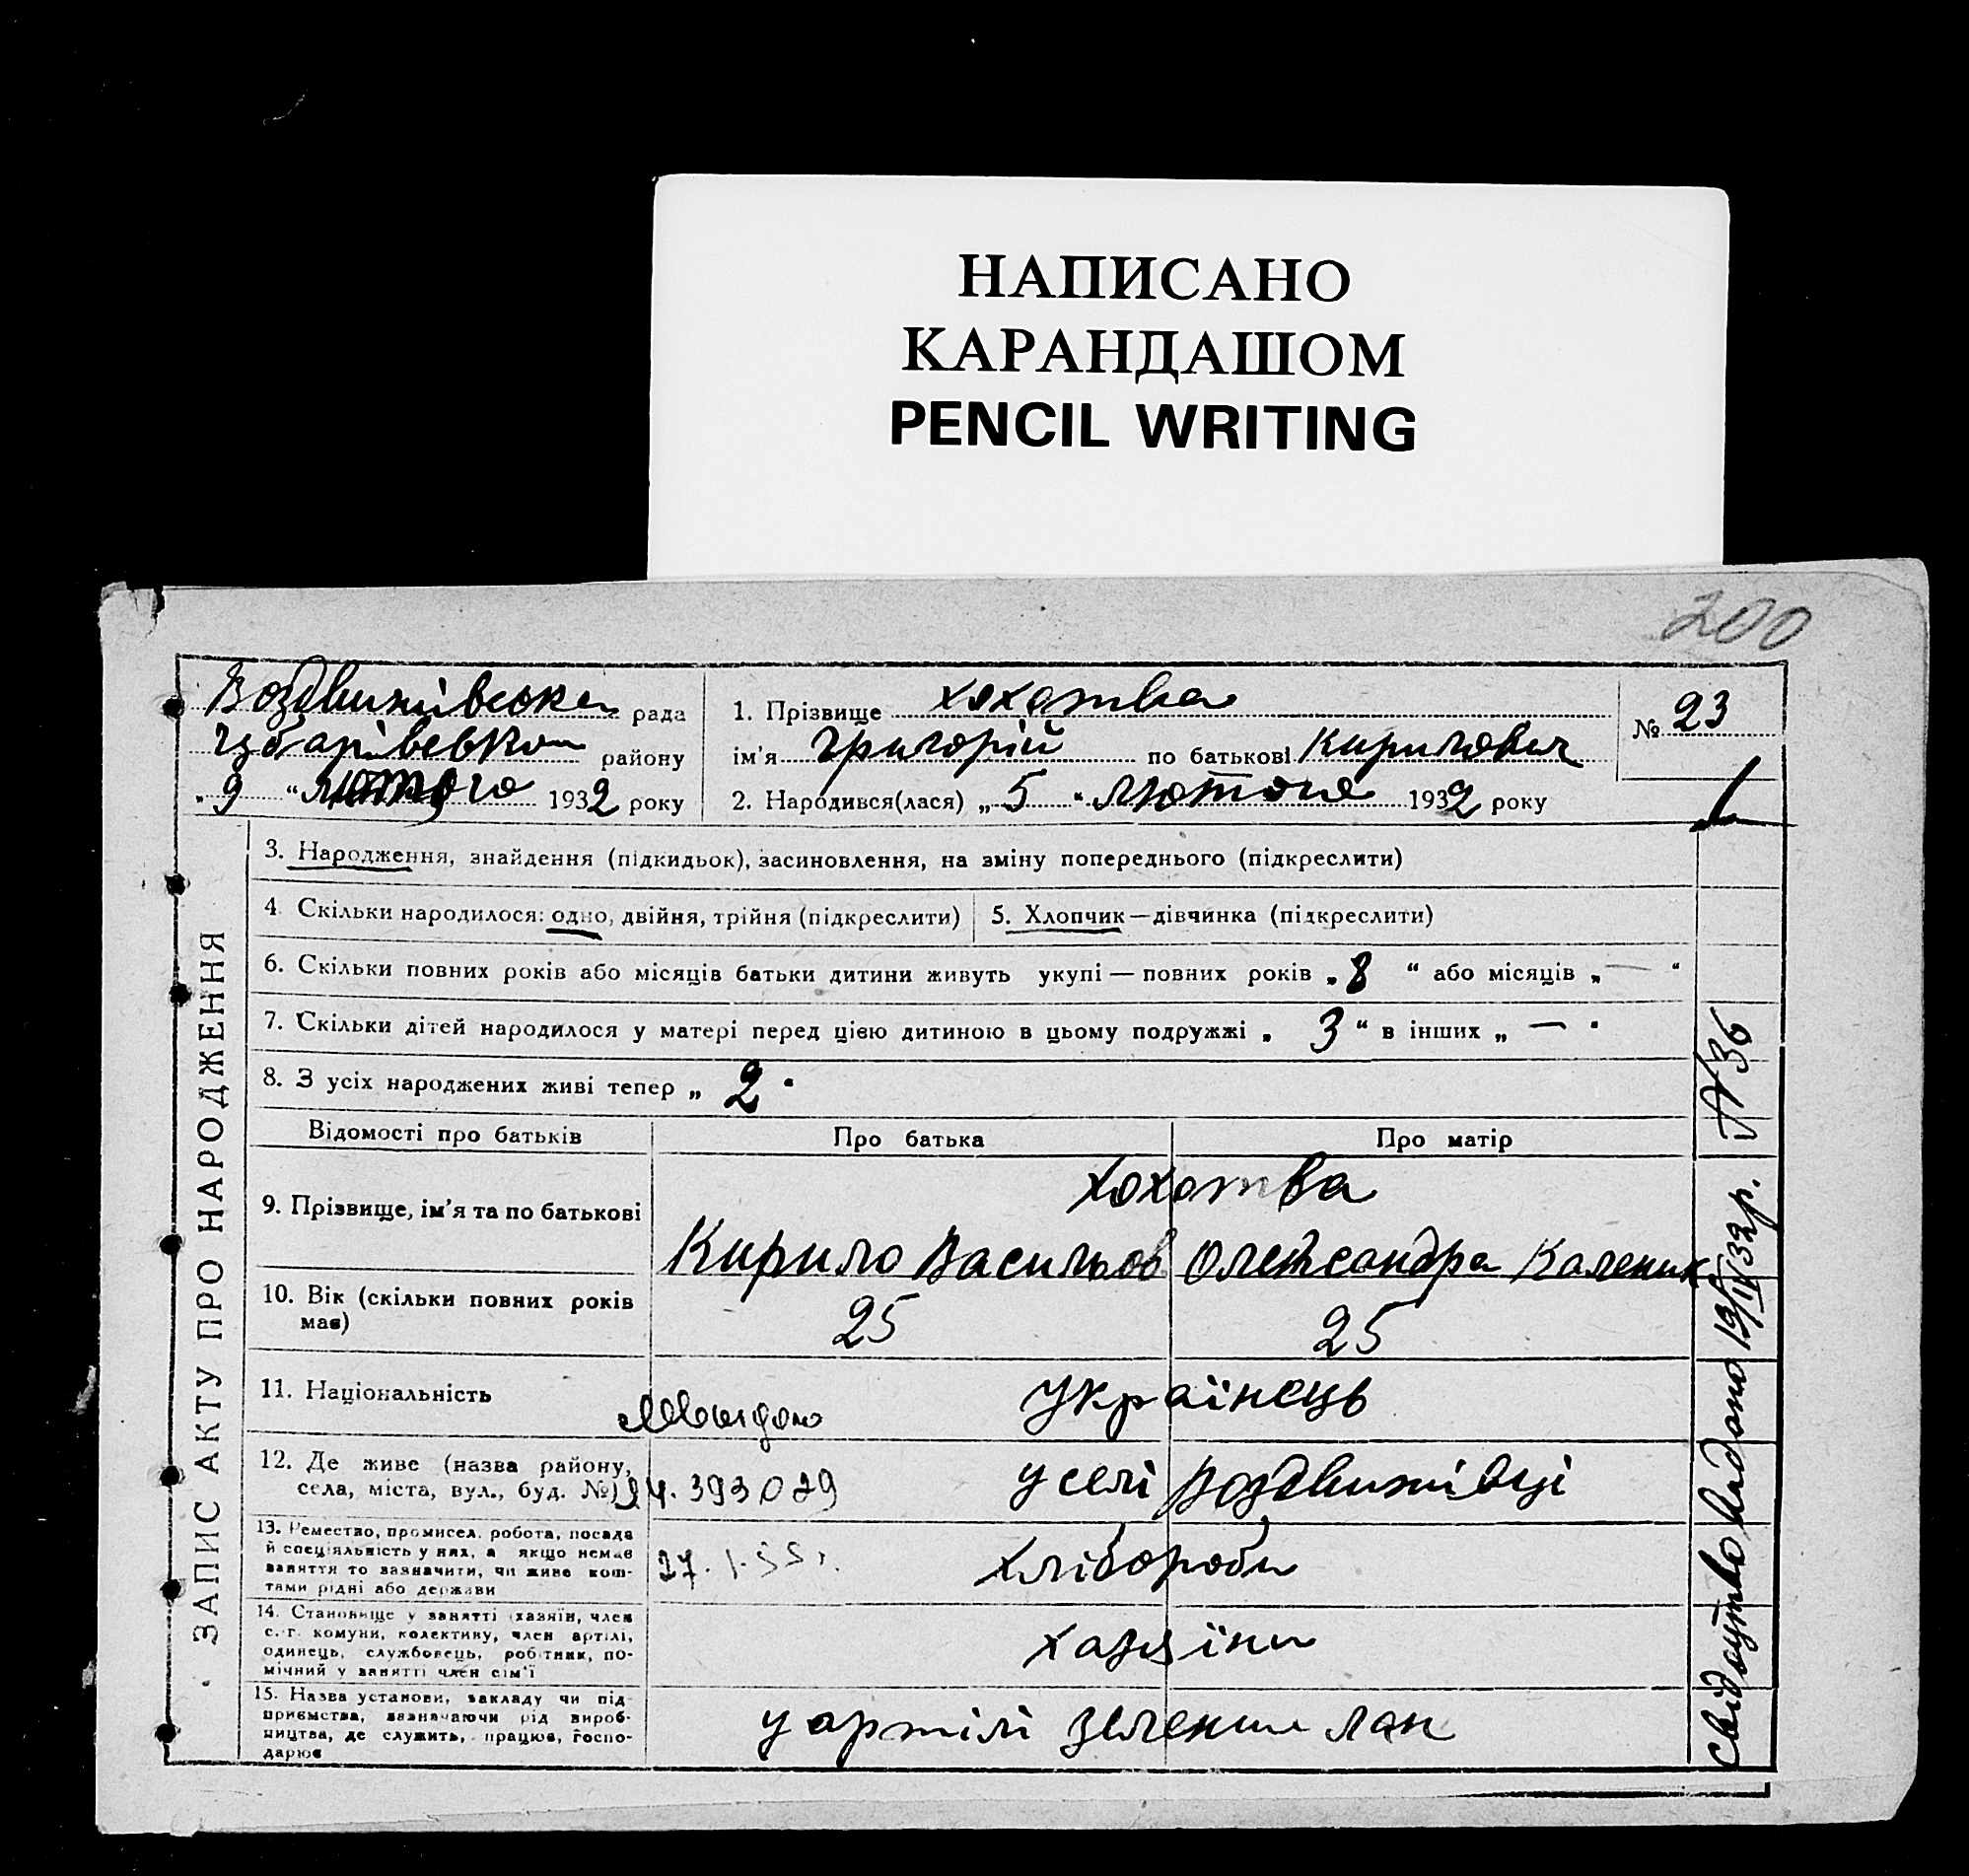 НАПИСАНО
КАРАНДАШОМ
PENCIL WRITING
200
Воздвижівська рада
району
„9“ лютого 1932 року
1. Прізвище Хохотва
ім'я Григорій по батькові Кирилович
2. Народився(лася) „5“ лютого 1932 року
№ 23
3. Народження, знайдення (підкидьок), засиновлення, на зміну попереднього (підкреслити)
4. Скільки народилося: одно, двійня, трійня (підкреслити)
5. Хлопчик — дівчинка (підкреслити)
6. Скільки повних років або місяців батьки дитини живуть укупі — повних років „8“ або місяців „—“
7. Скільки дітей народилося у матері перед цією дитиною в цьому подружжі „3“ в інших „—“
8. З усіх народжених живі тепер „2“
ЗАПИС АКТУ ПРО НАРОДЖЕННЯ
Відомості про батьків
Про батька
Про матір
9. Прізвище, ім'я та по батькові
Хохотва
Кирило Васильов
Олександра Каленик
10. Вік (скільки повних років має)
25
25
11. Національність
українець
12. Де живе (назва району,
села, міста, вул., буд. №)
393029
у селі Воздвижівці
13. Ремество, промисел, робота, посада
й спеціяльність у них, а якщо немає
заняття то зазначити, чи живе кош-
тами рідні або держави
27.I.55 г.
хлібороби
14. Становище у занятті (хазяїн, член
с.-г. комуни, колективу, член артілі,
одинець, службовець, робітник, по-
мічний у занятті член сім'ї
хазяїни
15. Назва установи, закладу чи під-
приємства, зазначаючи рід вироб-
ництва, де служить, працює, госпо-
дарює
у артілі зелений лан
Свідоцтво видано 19/IV 32 р. № 36